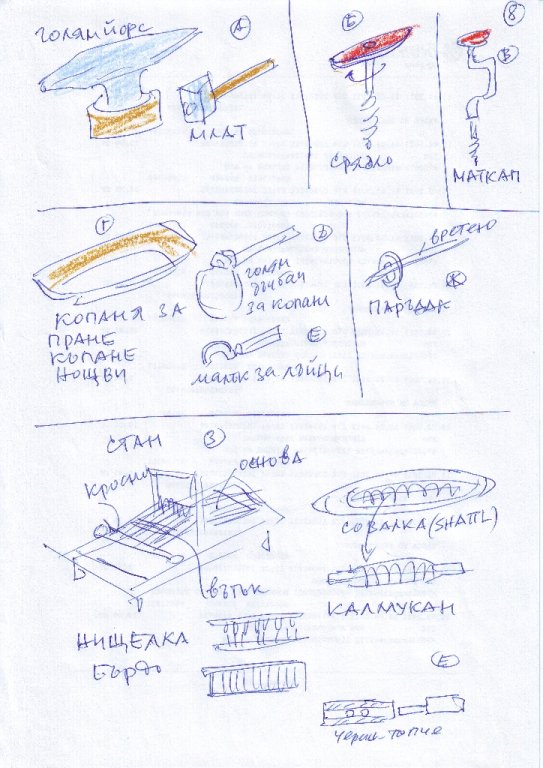 ГОЛЯМ ЙОРС
А
МЛАТ
Б
СРЯДЛО
8
В
МАТКАП
Г
КОПАНЯ ЗА
ПРАНЕ
КЪПАНЕ
НОЩВИ
Д
ГОЛЯМ
ДЪЛБАЧ
ЗА КОПАНИ
Е
МАЛЪК ЗА ЛЪЖИЦИ
ВРЕТЕНО
Ж
СТАН
З
КРОСНО
ОСНОВА
ВЪТЪК
СОВАЛКА (SHATTL)
КАЛМУКАН
НИЩЕЛКА
БЪРДО
Е